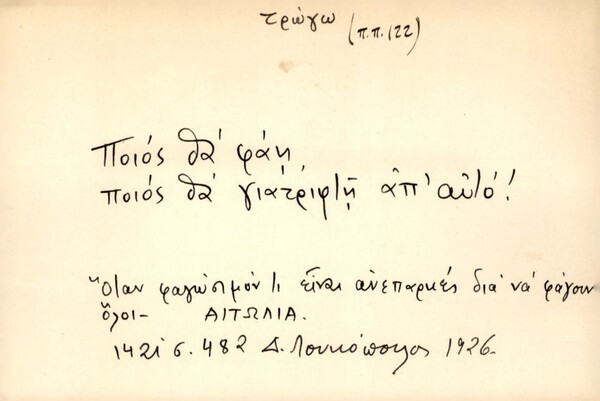 τρώγω (π.π. 122)
Ποιός θά φάῃ,
ποιός θά γιατριφτῇ ἀπ' αὐτό!
Ὅταν φαγώσιμόν τι εἶναι ἀνεπαρκές διά νά φάγουν
ὅλοι- ΑΙΤΩΛΙΑ.
σ. 482 Δ. Λουκόπουλος 1926.